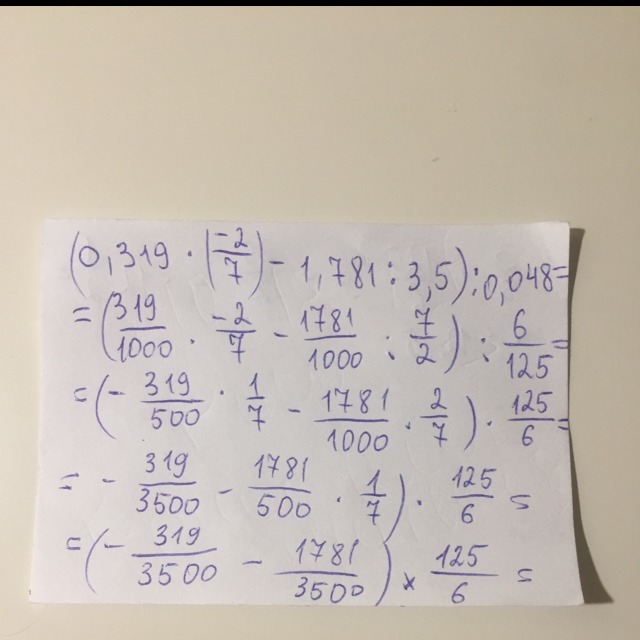 (0,319 · (-2/7) - 1,781 : 3,5) : 0,048 =
= (319/1000 · -2/7 - 1781/1000 : 7/2) : 6/125 =
= (- 319/500 · 1/7 - 1781/1000 · 2/7) · 125/6 =
= - 319/3500 - 1781/500 · 1/7) · 125/6 =
= (- 319/3500 - 1781/3500) × 125/6 =